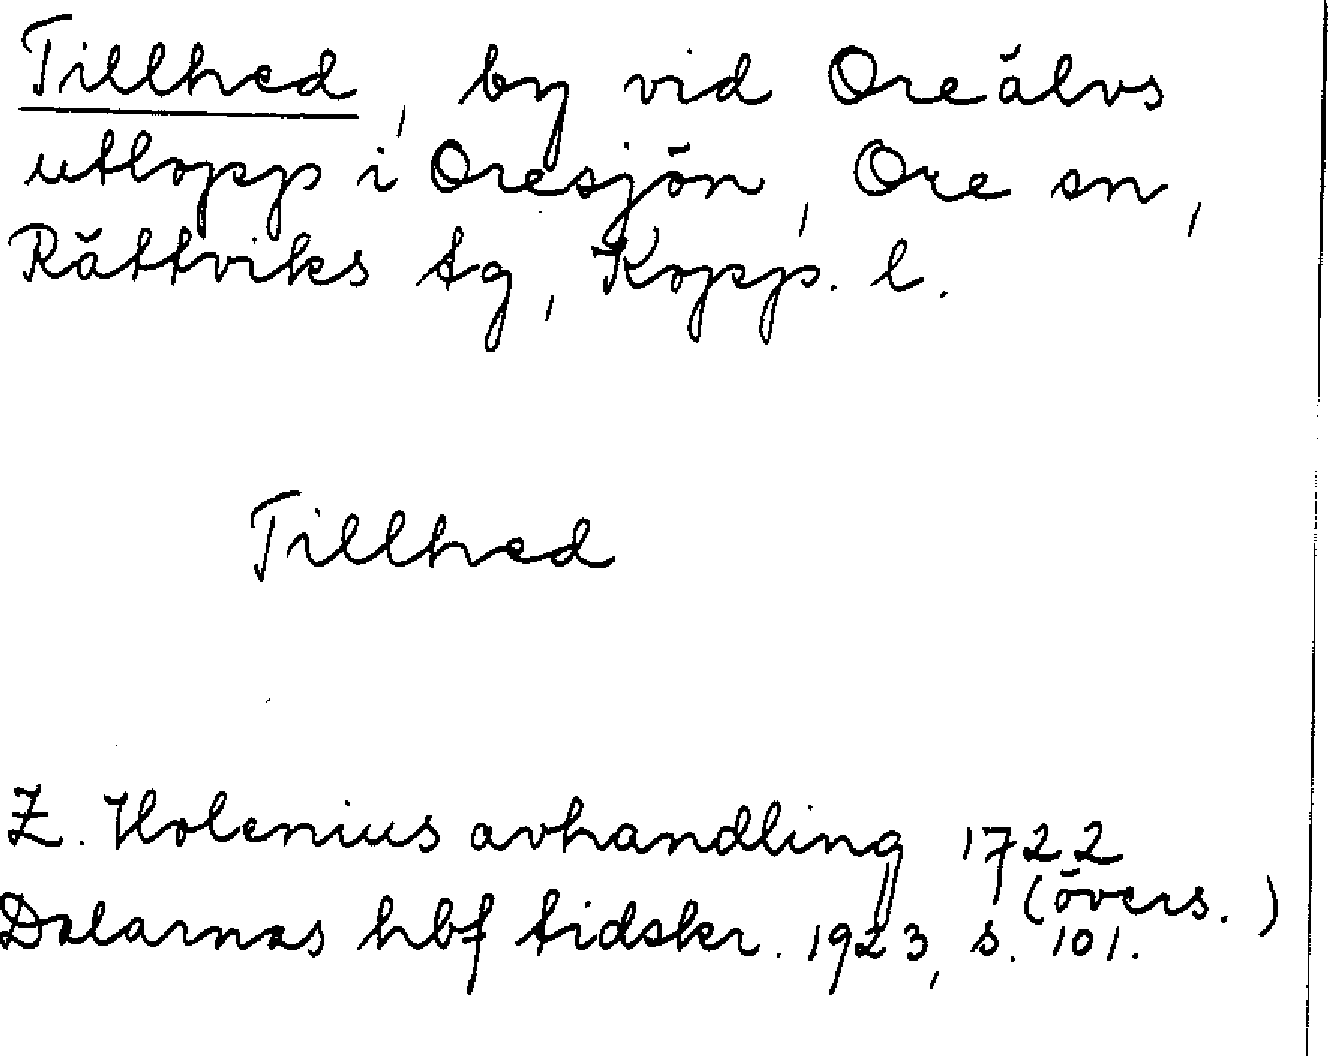 Tillhed, by vid Oreälvs
utlopp i Oresjön, Ore sn,
Rättviks tg, Kopp. l.
Tillhed
Z. Holenius avhandling 1722
(övers.)
Dalarnas hbf tidskr. 1923, s. 101.